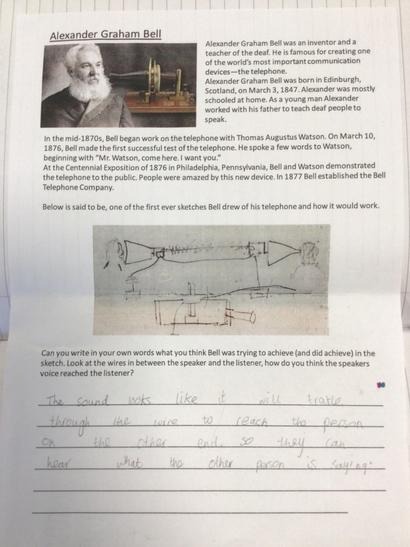 Alexander Graham Bell
Alexander Graham Bell was an inventor and a
teacher of the deaf. He is famous for creating one
of the world's most important communication
devices—the telephone.
Alexander Graham Bell was born in Edinburgh,
Scotland, on March 3, 1847. Alexander was mostly
schooled at home. As a young man Alexander
worked with his father to teach deaf people to
speak.
In the mid-1870s, Bell began work on the telephone with Thomas Augustus Watson. On March 10,
1876, Bell made the first successful test of the telephone. He spoke a few words to Watson,
beginning with "Mr. Watson, come here. I want you."
At the Centennial Exposition of 1876 in Philadelphia, Pennsylvania, Bell and Watson demonstrated
the telephone to the public. People were amazed by this new device. In 1877 Bell established the Bell
Telephone Company.
Below is said to be, one of the first ever sketches Bell drew of his telephone and how it would work.
Can you write in your own words what you think Bell was trying to achieve (and did achieve) in the
sketch. Look at the wires in between the speaker and the listener, how do you think the speakers
voice reached the listener?
The sound looks like it will travle
through the wire to reach the person
on the other end. so they can
hear what the other person is saying.